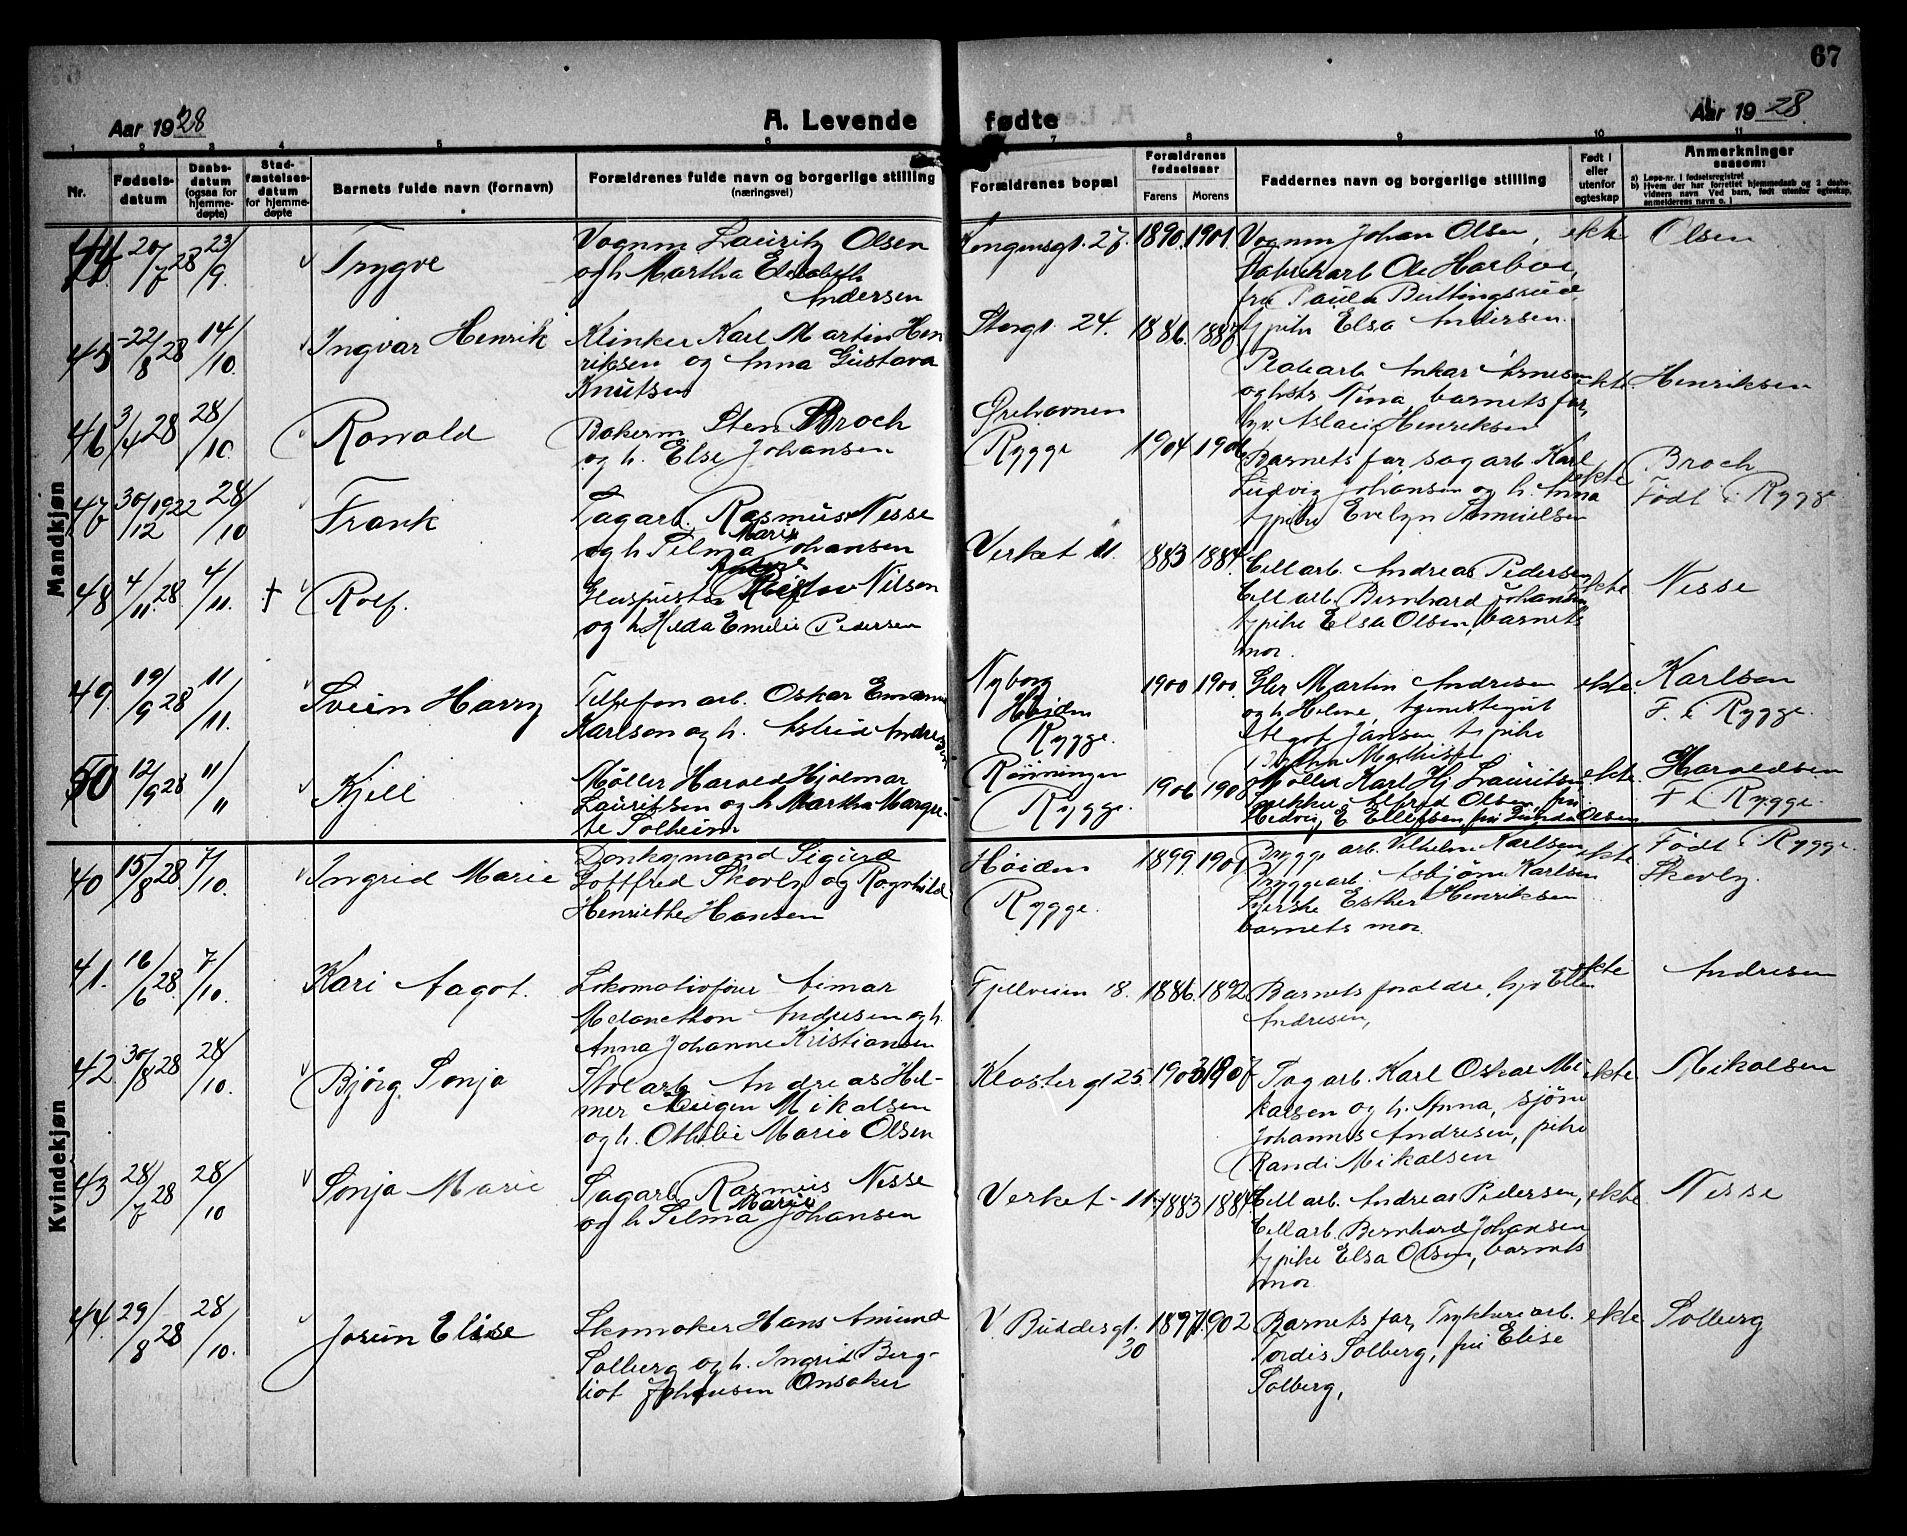 67
Aar 1928
A. Levende fødte
Aar 1928.
1 2 3 4 5 6 7 8 9 10 11
Nr.
Fødsels-
datum
Daabs-
datum
(ogsaa for
hjemme-
døpte)
Stad-
fæstelses-
datum
for hjemme-
døpte
Barnets fulde navn (fornavn)
Forældrenes fulde navn og borgerlige stilling
(næringsvei)
Forældrenes bopæl
Forældrenes
fødselsaar
Farens Morens
Faddernes navn og borgerlige stilling
Født i
eller
utenfor
egteskap
Anmerkninger
saasom:
a) Løpe-nr. i fødselsregistret
b) Hvem der har forrettet hjemmedaab og 2 daabs-
vidners navn Ved barn, født utenfor egteskap,
anmelderens navn o. l.
Mandkjøn
44 20/7 28 23/9 Trygve
Vognm Lauritz Olsen
og h Martha Elisabeth
Andersen
Kongensgt. 27. 1890. 1901.
Vognm Johan Olsen,
Fabrikarb Ole
fru Paula
pike Elsa Andersen.
ekte Olsen
45 22/8 28 14/10. Ingvar Henrik
Klinker Karl Martin Hen
riksen og Anna Gustava
Knutsen
Storgt. 24. 1886.
Arnesen
og hstr Nina, barnets far,
Henriksen
ekte Henriksen
46 3/4 28 28/10. Ronald
Bakerm. Sten Broch
og h. Else Johansen
Ørehavnen
Rygge 1904
Barnets far, sagarb Karl
Ludvig Johansen og h. Anna
pike Evelyn
ekte Broch
Født i Rygge
47 30/12 1922 28/10 Frank
Sagarb. Rasmus Nesse
og h Selma Marie Johansen
Verket 11. 1883 1884.
Cell arb. Andreas Pedersen
Cell arb. Bernhard Johansen
pike Elsa Olsen, barnets
mor.
ekte Nesse
48 4/11. 28 4/11. † Rolf.
Glaspuster Nilsen
og h Hilda Emelie Pedersen
49 19/9 28 11/11. Svein Harry
Telefon arb. Oskar Emanuel
Karlson og h. Astrid Andresen
Nyborg
Høiden
Rygge. 1900 1900.
Martin Andresen
og h Helene, tjenestegut
Jansen pike
ekte. Karlsen
F. i Rygge.
50 12/9 28 11/11 Kjell
Møller Harald Hjalmar
Lauritsen og h Martha Margre-
te Solheim
Rønningen
Rygge. 1906
Møller Karl Hj Lauritsen
Alfred Olsen, fru
Hedvig E Ellefsen fru Gunda Olsen
ekte. Haraldsen
F i Rygge.
Kvindekjøn
40 15/8 28 7/10. Ingrid Marie
Donkeymand Sigurd
Gottfred Skovly og Ragnhild
Henriette Hansen
Høiden
Rygge. 1899. 1901
Brygge arb. Vilhelm Karlsen
Bryggearb. Asbjørn Karlsen
Esther Henriksen
barnets mor.
ekte. Født i Rygge.
Skovly.
41. 16/6 28. 7/10. Kari Aagot.
Lokomotivfører Aimar
Melancthon Andresen og h.
Anna Johanne Kristiansen
Fjellveien 18. 1886. 1892
Barnets foreldre, hjv Ellen
Andresen,
ekte Andresen
42. 30/8 28 28/10. Bjørg Sonja
Andreas Hil-
mer Eugen Mikalsen
og h. Othilie Marie Olsen
Kloster gt 25.
Sagarb. Karl Oskar Mi
kalsen og h. Anna, sjøm
Johannes Andresen, pike
Randi Mikalsen
ekte Mikalsen
43 28/7 28 28/10 Sonja Marie
Sagarb Rasmus Nesse
og h Selma Marie Johansen
Verket 11. 1883 1884
Cell arb. Andreas Pedersen,
Cell arb. Bernhard Johansen
pike Elsa Olsen, barnets
mor.
ekte Nesse
44. 29/8 28 28/10. Jorun Elise
Skomaker Hans Amund
Solberg og h. Ingrid Berg-
liot Johansen Onsaker
V Buddesgt.
30 1897 1902
Barnets far, Trykkeriarb.
Tordis Solberg, fru Elise
Solberg,
ekte Solberg